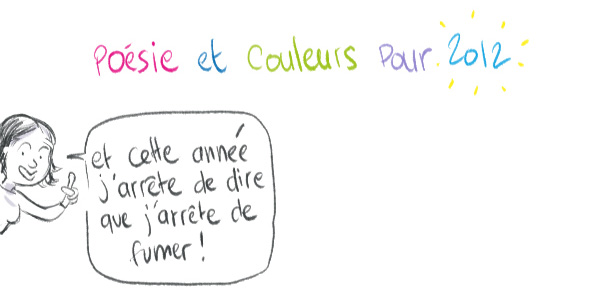 Poésie et Couleurs Pour 2012
et cette année
j'arrête de dire
que j'arrête de
fumer !